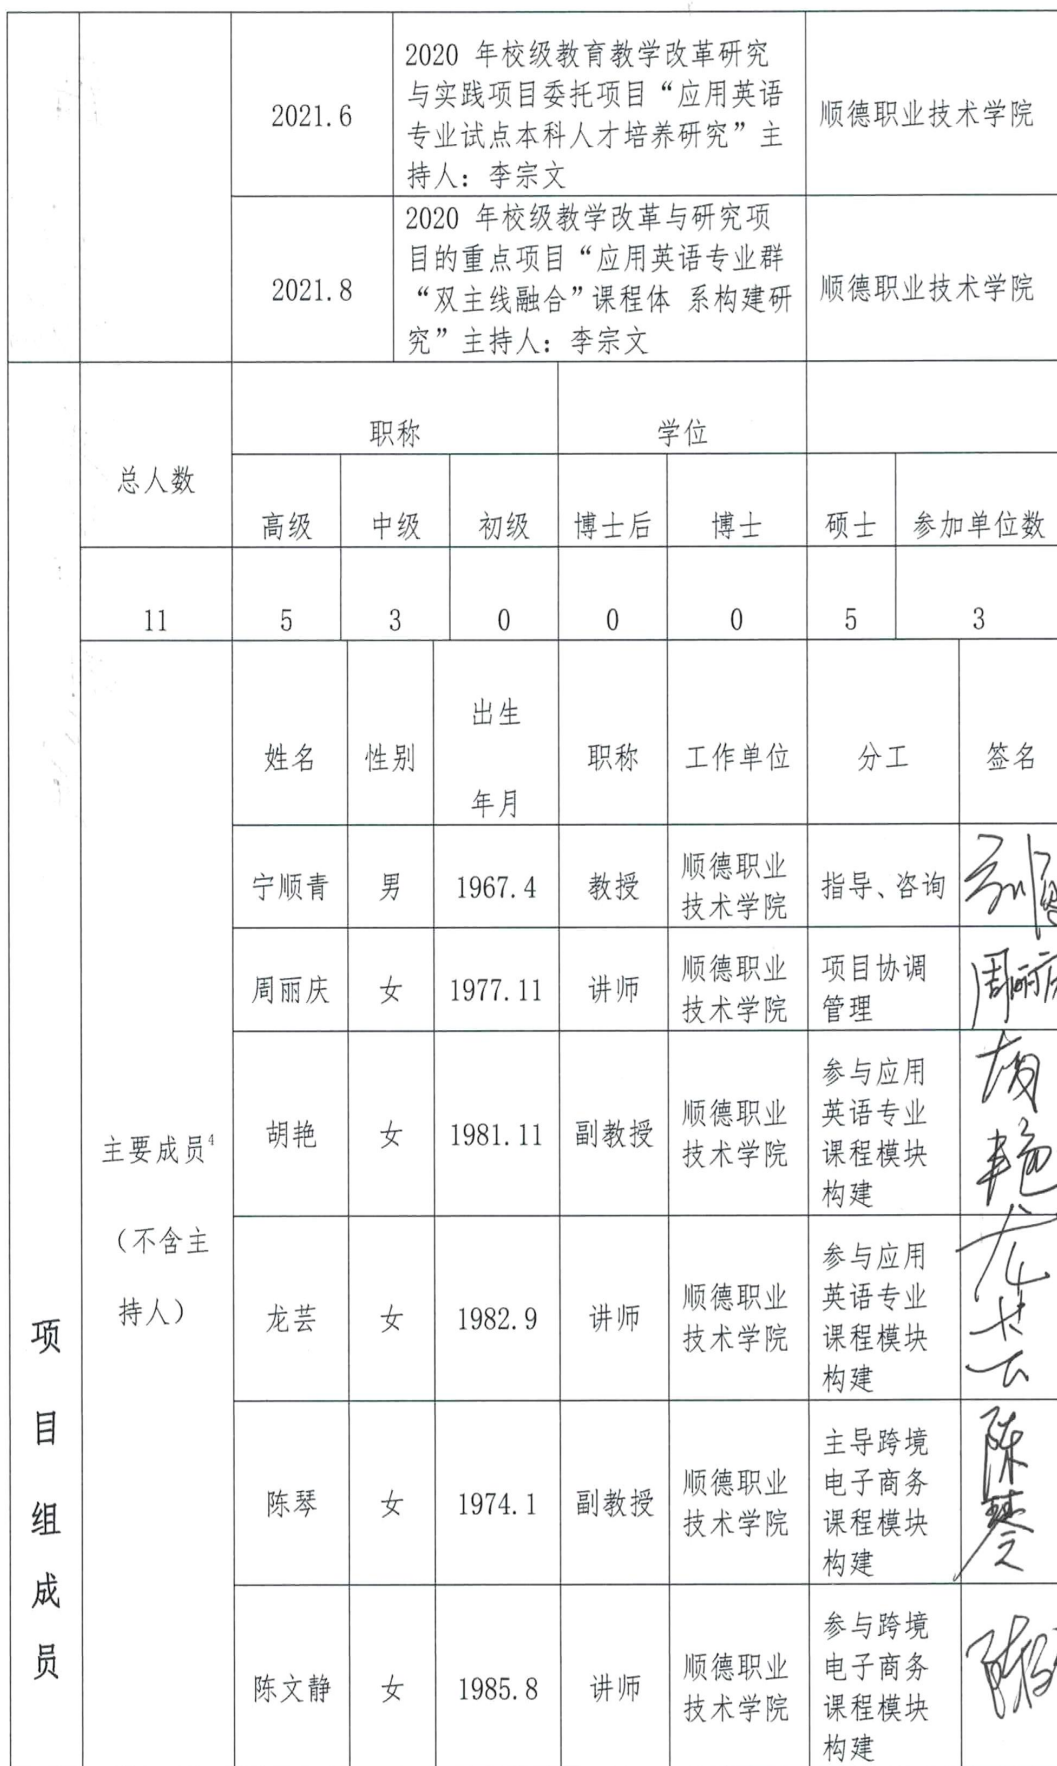 2021.6
2020 年校级教育教学改革研究
与实践项目委托项目“应用英语
专业试点本科人才培养研究”主
持人：李宗文
顺德职业技术学院
2021.8
2020 年校级教学改革与研究项
目的重点项目“应用英语专业群
“双主线融合”课程体 系构建研
究”主持人：李宗文
顺德职业技术学院
项
目
组
成
员
总人数
职称
学位
高级
中级
初级
博士后
博士
硕士
参加单位数
11
5
3
0
0
0
5
3
主要成员4
（不含主
持人）
姓名
性别
出生
年月
职称
工作单位
分工
签名
宁顺青
男
1967.4
教授
顺德职业
技术学院
指导、咨询
周丽庆
女
1977.11
讲师
顺德职业
技术学院
项目协调
管理
周丽庆
胡艳
女
1981.11
副教授
顺德职业
技术学院
参与应用
英语专业
课程模块
构建
胡
艳
龙芸
女
1982.9
讲师
顺德职业
技术学院
参与应用
英语专业
课程模块
构建
龙
芸
陈琴
女
1974.1
副教授
顺德职业
技术学院
主导跨境
电子商务
课程模块
构建
陈
琴
陈文静
女
1985.8
讲师
顺德职业
技术学院
参与跨境
电子商务
课程模块
构建